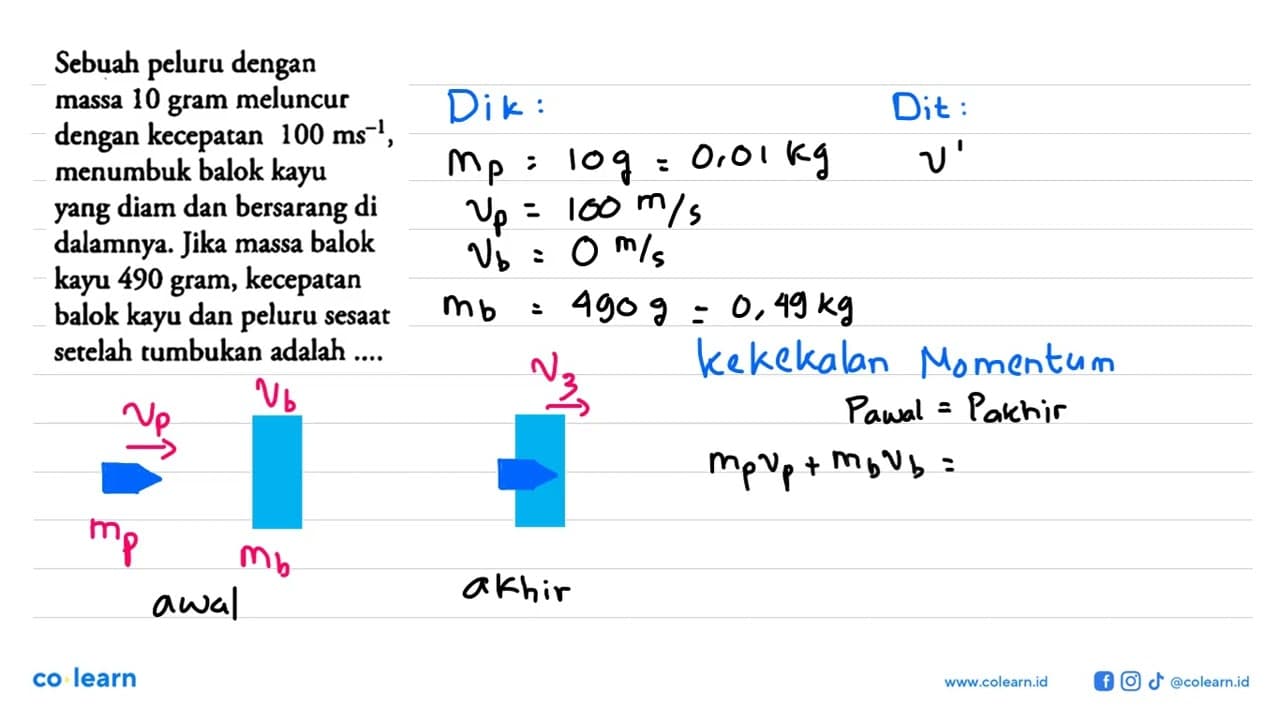 Sebuah peluru dengan
massa 10 gram meluncur
dengan kecepatan 100 ms⁻¹,
menumbuk balok kayu
yang diam dan bersarang di
dalamnya. Jika massa balok
kayu 490 gram, kecepatan
balok kayu dan peluru sesaat
setelah tumbukan adalah ....
Dik :
mp = 10g = 0,01 kg
vp = 100 m/s
vb = 0 m/s
mb = 490 g = 0,49 kg
Dit :
v'
kekekalan Momentum
Pawal = Pakhir
mpvp + mbvb =
vp
vb
mp
mb
awal
v3
akhir
co learn
www.colearn.id
@colearn.id